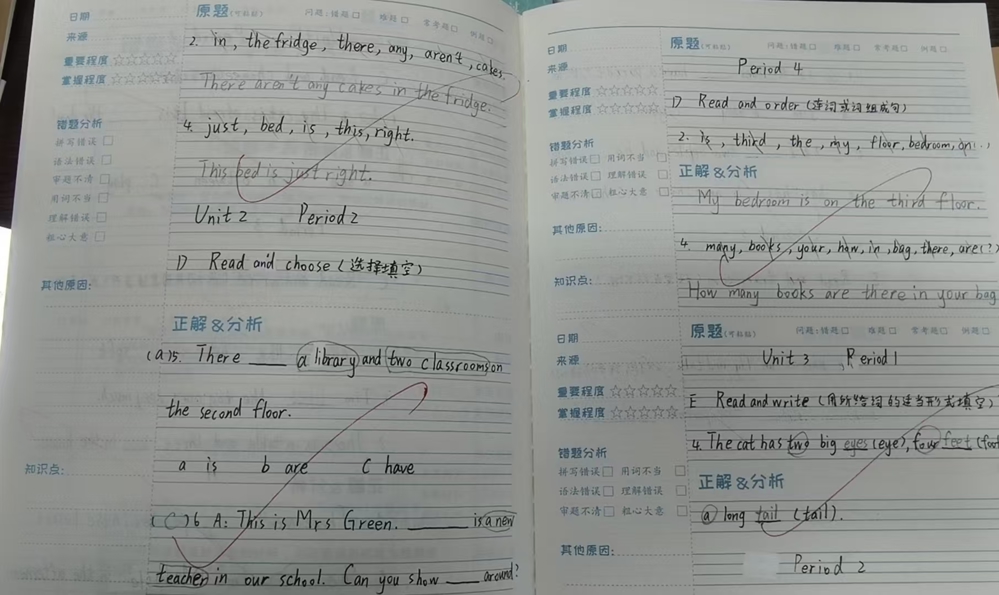 日期
原题(可粘贴) 问题:错题□ 难题□ 常考题□ 例题□
来源
重要程度 ☆☆☆☆☆
掌握程度 ☆☆☆☆☆
2. in, the fridge, there, any, aren't, cakes.
There aren't any cakes in the fridge.
错题分析
拼写错误 □
语法错误 □
审题不清 □
用词不当 □
理解错误 □
粗心大意 □
4. just, bed, is, this, right.
This bed is just right.
Unit 2 Period 2
D Read and choose (选择填空)
其他原因:
正解&分析
(a)5. There ____ a library and two classrooms on
the second floor.
a is b are c have
知识点:
(C)6 A: This is Mrs Green. ____ is a new
teacher in our school. Can you show ____ around?
日期
原题(可粘贴) 问题:错题□ 难题□ 常考题□ 例题□
来源
Period 4
重要程度 ☆☆☆☆☆
掌握程度 ☆☆☆☆☆
D Read and order (连词或词组成句)
2. is, third, the, my, floor, bedroom, on(.)
错题分析
拼写错误□ 用词不当 □
语法错误□ 理解错误 □
审题不清□ 粗心大意 □
正解&分析
My bedroom is on the third floor.
其他原因:
4. many, books, your, how, in, bag, there, are(?)
知识点:
How many books are there in your bag
日期
原题(可粘贴) 问题:错题□ 难题□ 常考题□ 例题□
来源
Unit 3 Period 1
重要程度 ☆☆☆☆☆
掌握程度 ☆☆☆☆☆
E Read and write (用所给词的适当形式填空)
4. The cat has two big eyes (eye), four feet (foot
错题分析
拼写错误□ 用词不当 □
语法错误□ 理解错误 □
审题不清□ 粗心大意 □
正解&分析
a long tail (tail).
其他原因:
Period 2